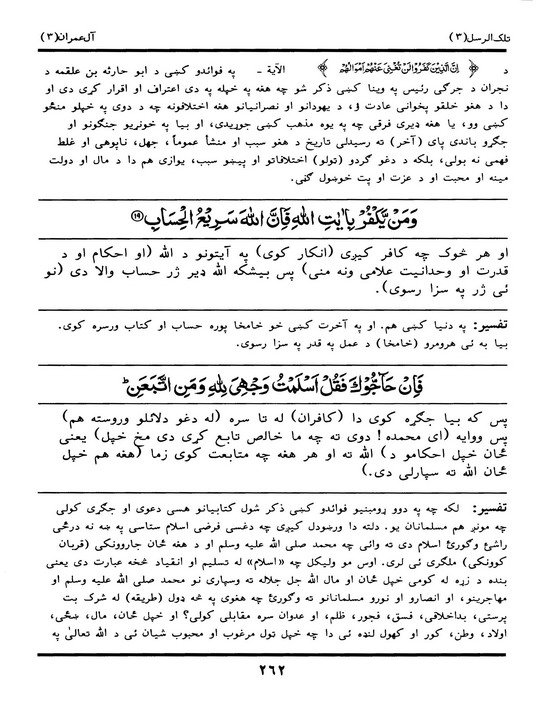 تلك الرسل(٣)
آل عمران(٣)
د ﴿ اِنَّ الَّذِيْنَ كَفَرُوْا لَنْ تُغْنِىَ عَنْهُمْ اَمْوَالُهُمْ ﴾ الآية - په فوائدو کښی د ابو حارثه بن علقمه د
نجران د جرګی رئیس په وینا کښی ذکر شو چه هغه په خپله په دی اعتراف او اقرار کړی دی او
دا د هغو خلقو پخوانی عادت ؤ، د یهودانو او نصرانیانو هغه اختلافونه چه د دوی په خپلو منځو
کښی وو، یا هغه ډیری فرقی چه په یوه مذهب کښی جوړیدی، او بیا په خونړیو جنګونو او
جګړو باندی پای (آخر) ته رسیدلی تاریخ د هغو سبب او منشأ عموماً، جهل، ناپوهی او غلط
فهمی نه بولی، بلکه د دغو ګردو (ټولو) اختلافاتو او پیښو سبب، یوازی هم دا د مال او دولت
مینه او محبت او د عزت او پت خوښول ګڼی.
وَمَنْ يَّكْفُرْ بِاٰيٰتِ اللهِ فَاِنَّ اللهَ سَرِيْعُ الْحِسَابِ ⑲
او هر څوک چه کافر کیږی (انکار کوی) په آیتونو د الله (او احکام او د
قدرت او وحدانیت علامی ونه منی) پس بیشکه الله ډیر ژر حساب والا دی (نو
ئی ژر په سزا رسوی).
تفسیر: په دنیا کښی هم. او په آخرت کښی خو خامخا پوره حساب او کتاب ورسره کوی.
بیا به ئی هرومرو (خامخا) د عمل په قدر په سزا رسوی.
فَاِنْ حَآجُّوْكَ فَقُلْ اَسْلَمْتُ وَجْهِىَ لِلهِ وَمَنِ اتَّبَعَنِ ؕ
پس که بیا جګړه کوی دا (کافران) له تا سره (له دغو دلائلو وروسته هم)
پس ووایه (ای محمده! دوی ته چه ما خالص تابع کړی دی مخ خپل) یعنی
ځان خپل احکامو د) الله ته او هر هغه چه متابعت کوی زما (هغه هم خپل
ځان الله ته سپارلی دی.)
تفسیر: لکه چه په دوو ړومبنیو فوائدو کښی ذکر شول کتابیانو هسی دعوی او جګړی کولی
چه مونږ هم مسلمانان یو. دلته دا ورښودل کیږی چه دغسی فرضی اسلام ستاسی په ښه نه درځی
راشئ وګورئ اسلام دی ته وائی چه محمد صلی الله علیه وسلم او د هغه ځان جاروونکی (قربان
کوونکی) ملګری ئی لری. اوس مو ولیکل چه «اسلام» له تسلیم او انقیاد څخه عبارت دی یعنی
بنده د زړه له کومی خپل ځان او مال الله جل جلاله ته وسپاری نو محمد صلی الله علیه وسلم او
مهاجرینو، او انصارو او نورو مسلمانانو ته وګورئ چه هغوی په څه ډول (طریقه) له شرک بت
پرستی، بداخلاقی، فسق، فجور، ظلم، او عدوان سره مقابلی کولی؟ او خپل ځان، مال، ښځی،
اولاد، وطن، کور او کهول لنډه ئی دا چه خپل ټول مرغوب او محبوب شیان ئی د الله تعالیٰ په
٢٦٢